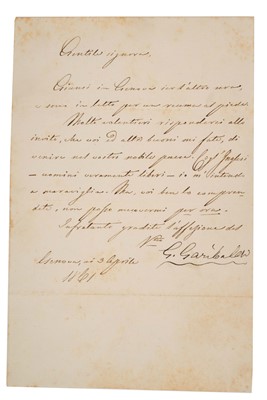 Gentile signora,
Giunsi in Genova ier l'altro sera,
e sono in letto per un reuma al piede.
Molto volentieri risponderei allo
invito, che voi ed altri buoni mi fate, di
venire nel vostro nobile paese. Cogl'Inglesi
— uomini veramente liberi — io m'intendo
a maraviglia. Ma, voi ben lo compren-
dete, non posso muovermi per ora.
Infrattanto gradite l'affezione del
V.ro
G. Garibaldi
Genova, 3 Aprile
1861